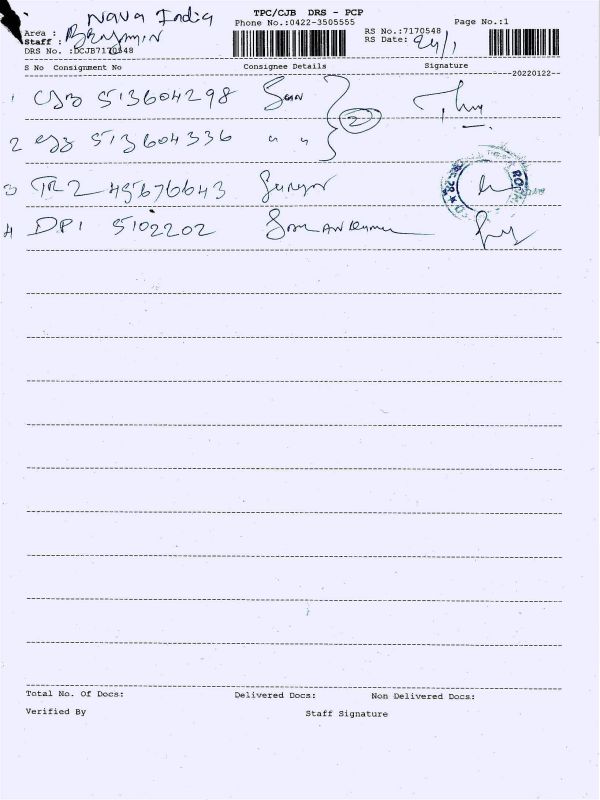 TPC/CJB DRS - PCP
Area : Nava India
Phone No.:0422-3505555
Page No.:1
Staff : Benjamin
RS No.:7170548
RS Date: 24/1
DRS No. :DCJB7170548
S No Consignment No Consignee Details Signature
--20220122--
1 CJB 513604298
2 CJB 513604336 " "
2
3 TRZ 45676643
4 DPI 5102202
Total No. Of Docs: Delivered Docs: Non Delivered Docs:
Verified By Staff Signature